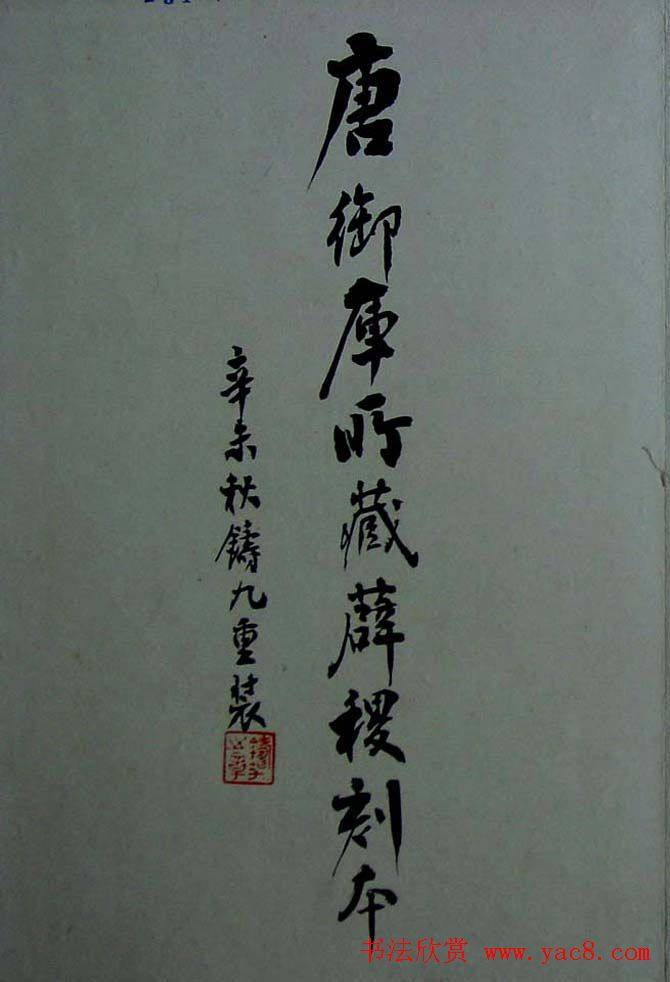 唐御庫所藏薛稷刻本
辛未秋鑄九重裝
书法欣赏 www.yac8.com